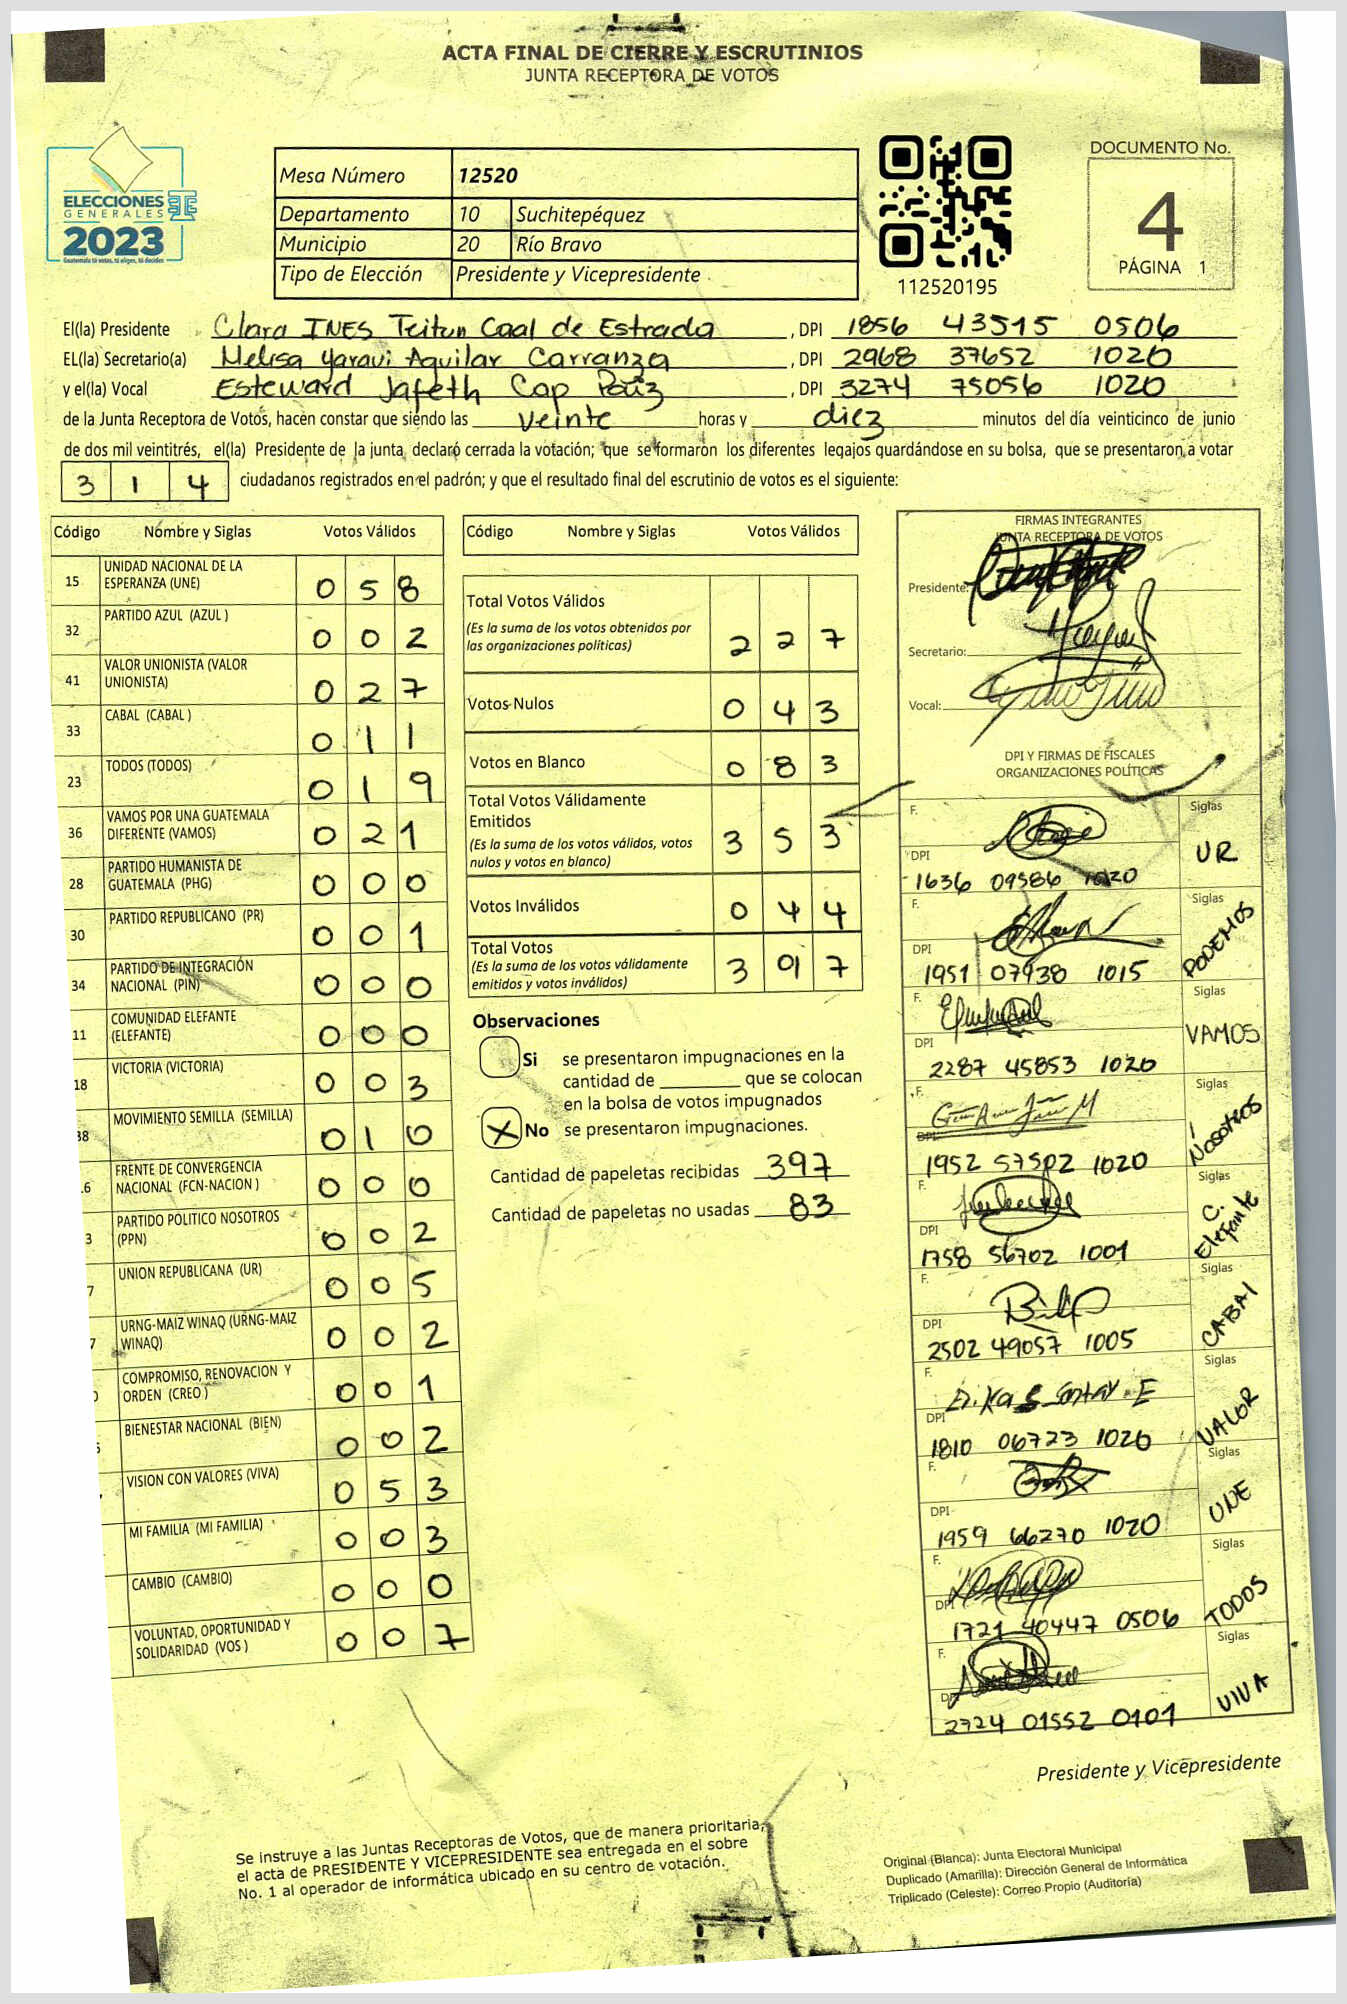 ACTA FINAL DE CIERRE Y ESCRUTINIOS
JUNTA RECEPTORA DE VOTOS
ELECCIONES
GENERALES
2023
Guatemala tú votas, tú eliges, tú decides
Mesa Número 12520
Departamento 10 Suchitepéquez
Municipio 20 Río Bravo
Tipo de Elección Presidente y Vicepresidente
112520195
DOCUMENTO No.
4
PÁGINA 1
El(la) Presidente Clara INES Teitun Caal de Estrada, DPI 1856 43515 0506
EL(la) Secretario(a) Melisa Yaravi Aguilar Carranza, DPI 2968 37652 1020
y el(la) Vocal Esteward Jafeth Cop, DPI 3274 75056 1020
de la Junta Receptora de Votos, hacen constar que siendo las veinte horas y diez minutos del día veinticinco de junio
de dos mil veintitrés, el(la) Presidente de la junta declaró cerrada la votación; que se formaron los diferentes legajos guardándose en su bolsa, que se presentaron a votar
3 1 4 ciudadanos registrados en el padrón; y que el resultado final del escrutinio de votos es el siguiente:
Código Nombre y Siglas Votos Válidos
15 UNIDAD NACIONAL DE LA ESPERANZA (UNE) 0 5 8
32 PARTIDO AZUL (AZUL ) 0 0 2
41 VALOR UNIONISTA (VALOR UNIONISTA) 0 2 7
33 CABAL (CABAL ) 0 1 1
23 TODOS (TODOS) 0 1 9
36 VAMOS POR UNA GUATEMALA DIFERENTE (VAMOS) 0 2 1
28 PARTIDO HUMANISTA DE GUATEMALA (PHG) 0 0 0
30 PARTIDO REPUBLICANO (PR) 0 0 1
34 PARTIDO DE INTEGRACIÓN NACIONAL (PIN) 0 0 0
11 COMUNIDAD ELEFANTE (ELEFANTE) 0 0 0
18 VICTORIA (VICTORIA) 0 0 3
38 MOVIMIENTO SEMILLA (SEMILLA) 0 1 0
6 FRENTE DE CONVERGENCIA NACIONAL (FCN-NACION ) 0 0 0
3 PARTIDO POLITICO NOSOTROS (PPN) 0 0 2
7 UNION REPUBLICANA (UR) 0 0 5
7 URNG-MAIZ WINAQ (URNG-MAIZ WINAQ) 0 0 2
COMPROMISO, RENOVACION Y ORDEN (CREO ) 0 0 1
BIENESTAR NACIONAL (BIEN) 0 0 2
VISION CON VALORES (VIVA) 0 5 3
MI FAMILIA (MI FAMILIA) 0 0 3
CAMBIO (CAMBIO) 0 0 0
VOLUNTAD, OPORTUNIDAD Y SOLIDARIDAD (VOS ) 0 0 7
Código Nombre y Siglas Votos Válidos
Total Votos Válidos 2 2 7
(Es la suma de los votos obtenidos por
las organizaciones políticas)
Votos Nulos 0 4 3
Votos en Blanco 0 8 3
Total Votos Válidamente
Emitidos 3 5 3
(Es la suma de los votos válidos, votos
nulos y votos en blanco)
Votos Inválidos 0 4 4
Total Votos 3 9 7
(Es la suma de los votos válidamente
emitidos y votos inválidos)
Observaciones
Si se presentaron impugnaciones en la
cantidad de ________ que se colocan
en la bolsa de votos impugnados
X No se presentaron impugnaciones.
Cantidad de papeletas recibidas 397
Cantidad de papeletas no usadas 83
FIRMAS INTEGRANTES
JUNTA RECEPTORA DE VOTOS
Presidente:
Secretario:
Vocal:
DPI Y FIRMAS DE FISCALES
ORGANIZACIONES POLÍTICAS
F. Siglas
DPI UR
1636 09586 1020
F. Siglas
DPI PODEMOS
1951 07938 1015
F. Siglas
DPI VAMOS
2287 45853 1020
F. Siglas
DPI Nosotros
1952 57502 1020
F. Siglas
DPI C. Elefante
1758 56702 1001
F. Siglas
DPI CABAL
2502 49057 1005
F. Siglas
DPI VALOR
1810 06723 1020
F. Siglas
DPI UNE
1959 66270 1020
F. Siglas
DPI TODOS
1721 40447 0506
F. Siglas
DPI VIVA
2724 01552 0101
Presidente y Vicepresidente
Se instruye a las Juntas Receptoras de Votos, que de manera prioritaria,
el acta de PRESIDENTE Y VICEPRESIDENTE sea entregada en el sobre
No. 1 al operador de informática ubicado en su centro de votación.
Original (Blanca): Junta Electoral Municipal
Duplicado (Amarilla): Dirección General de Informática
Triplicado (Celeste): Correo Propio (Auditoría)